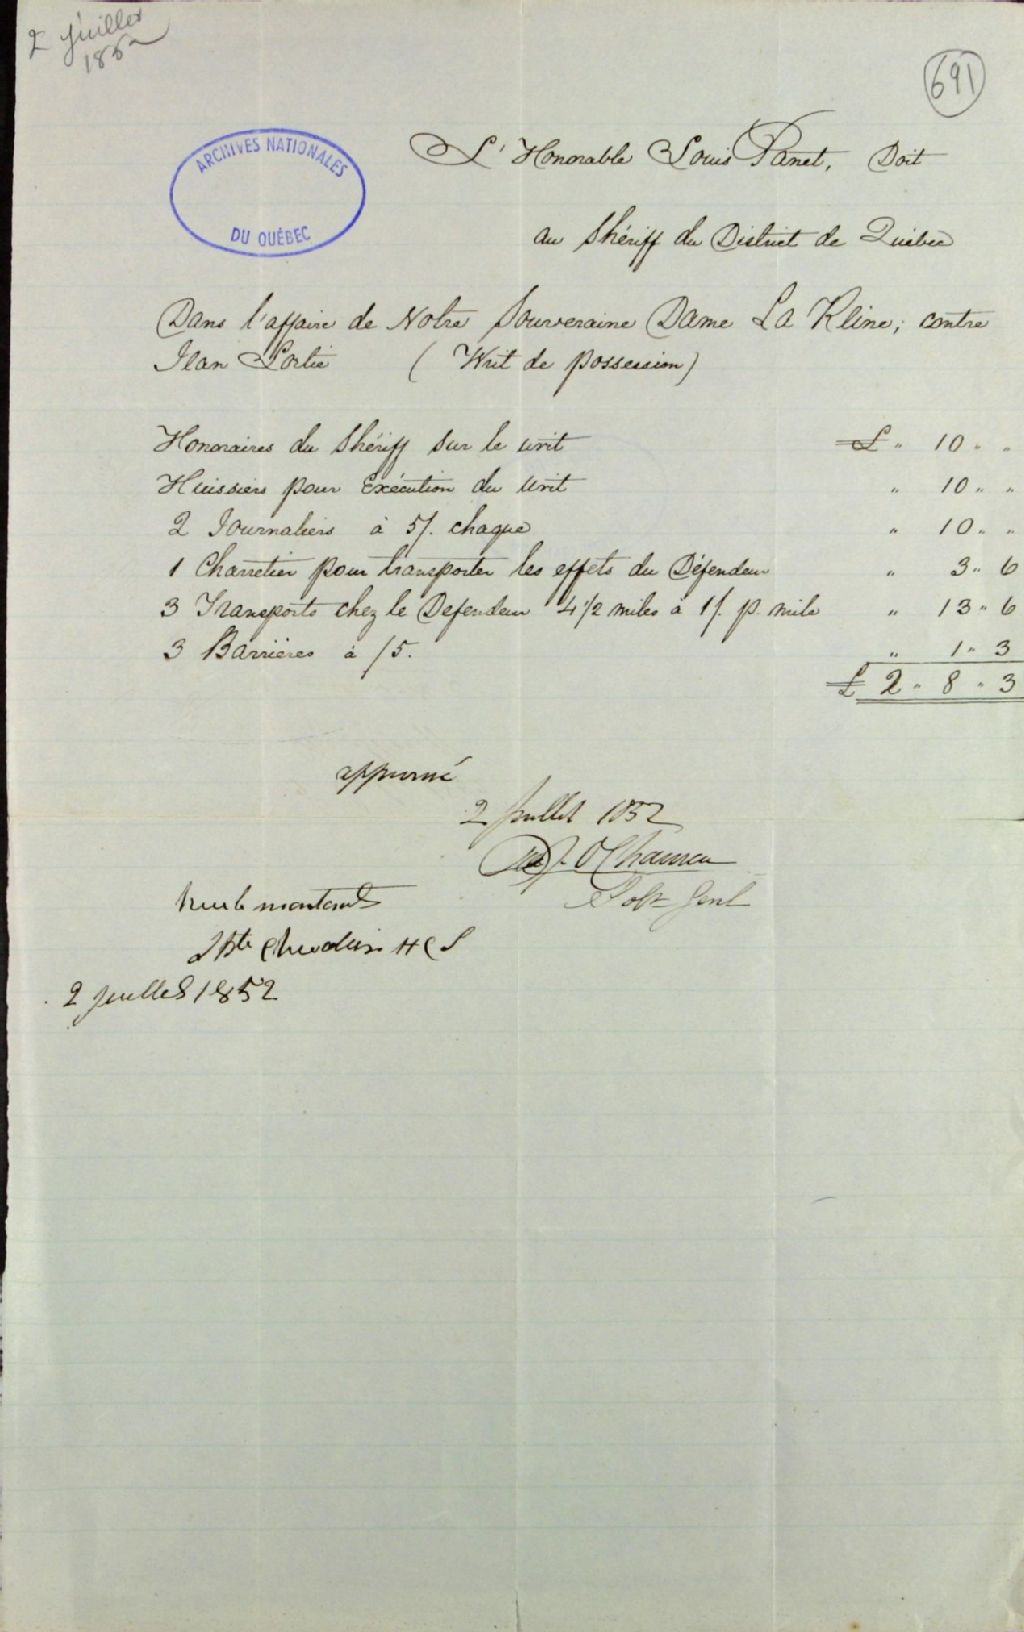 2 Juillet
1852
691
ARCHIVES NATIONALES
DU QUÉBEC
L'Honorable Louis Panet, Doit
au Shériff du District de Québec
Dans l'affaire de Notre Souveraine Dame La Reine; contre
Jean Portie ( Writ de possession)
Honoraires du Shériff sur le writ £ " 10 " "
Huissiers pour Exécution du Writ " 10 " "
2 Journaliers à 5/. chaque " 10 " "
1 Charretier pour transporter les effets du Défendeur " 3 " 6
3 Transports chez le Defendeur 4 1/2 miles à 1/. p. mile " 13 " 6
3 Barrières à /5. " 1 " 3
£ 2 " 8 " 3
approuvé
2 Juillet 1852
J. O Chauveau
Solr Genl
Reçu le montant
HCS
2 Juillet 1852